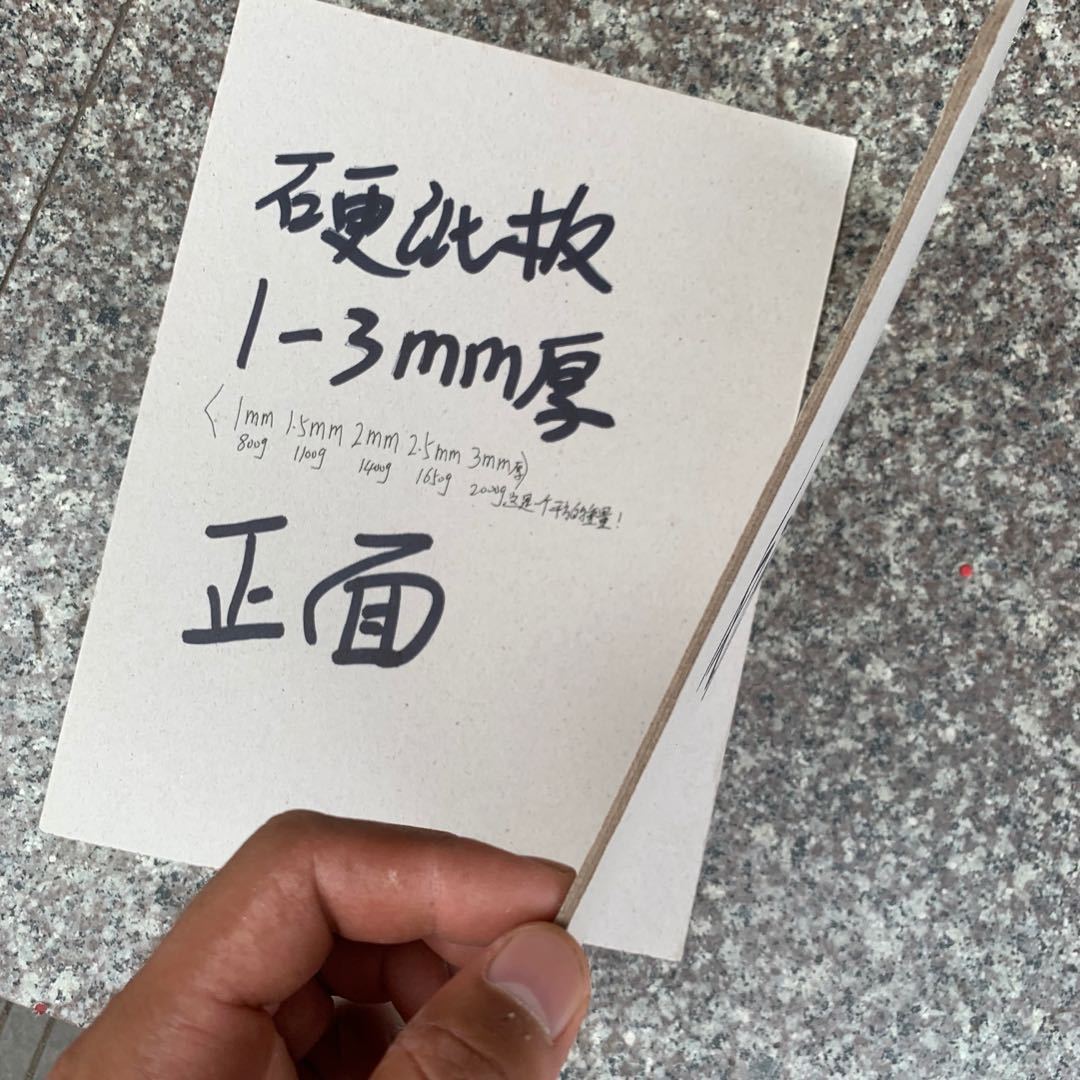 硬纸板
1-3mm厚
(1mm 1.5mm 2mm 2.5mm 3mm厚)
800g 1100g 1400g 1650g 2000g这是一个平方的重量!
正面